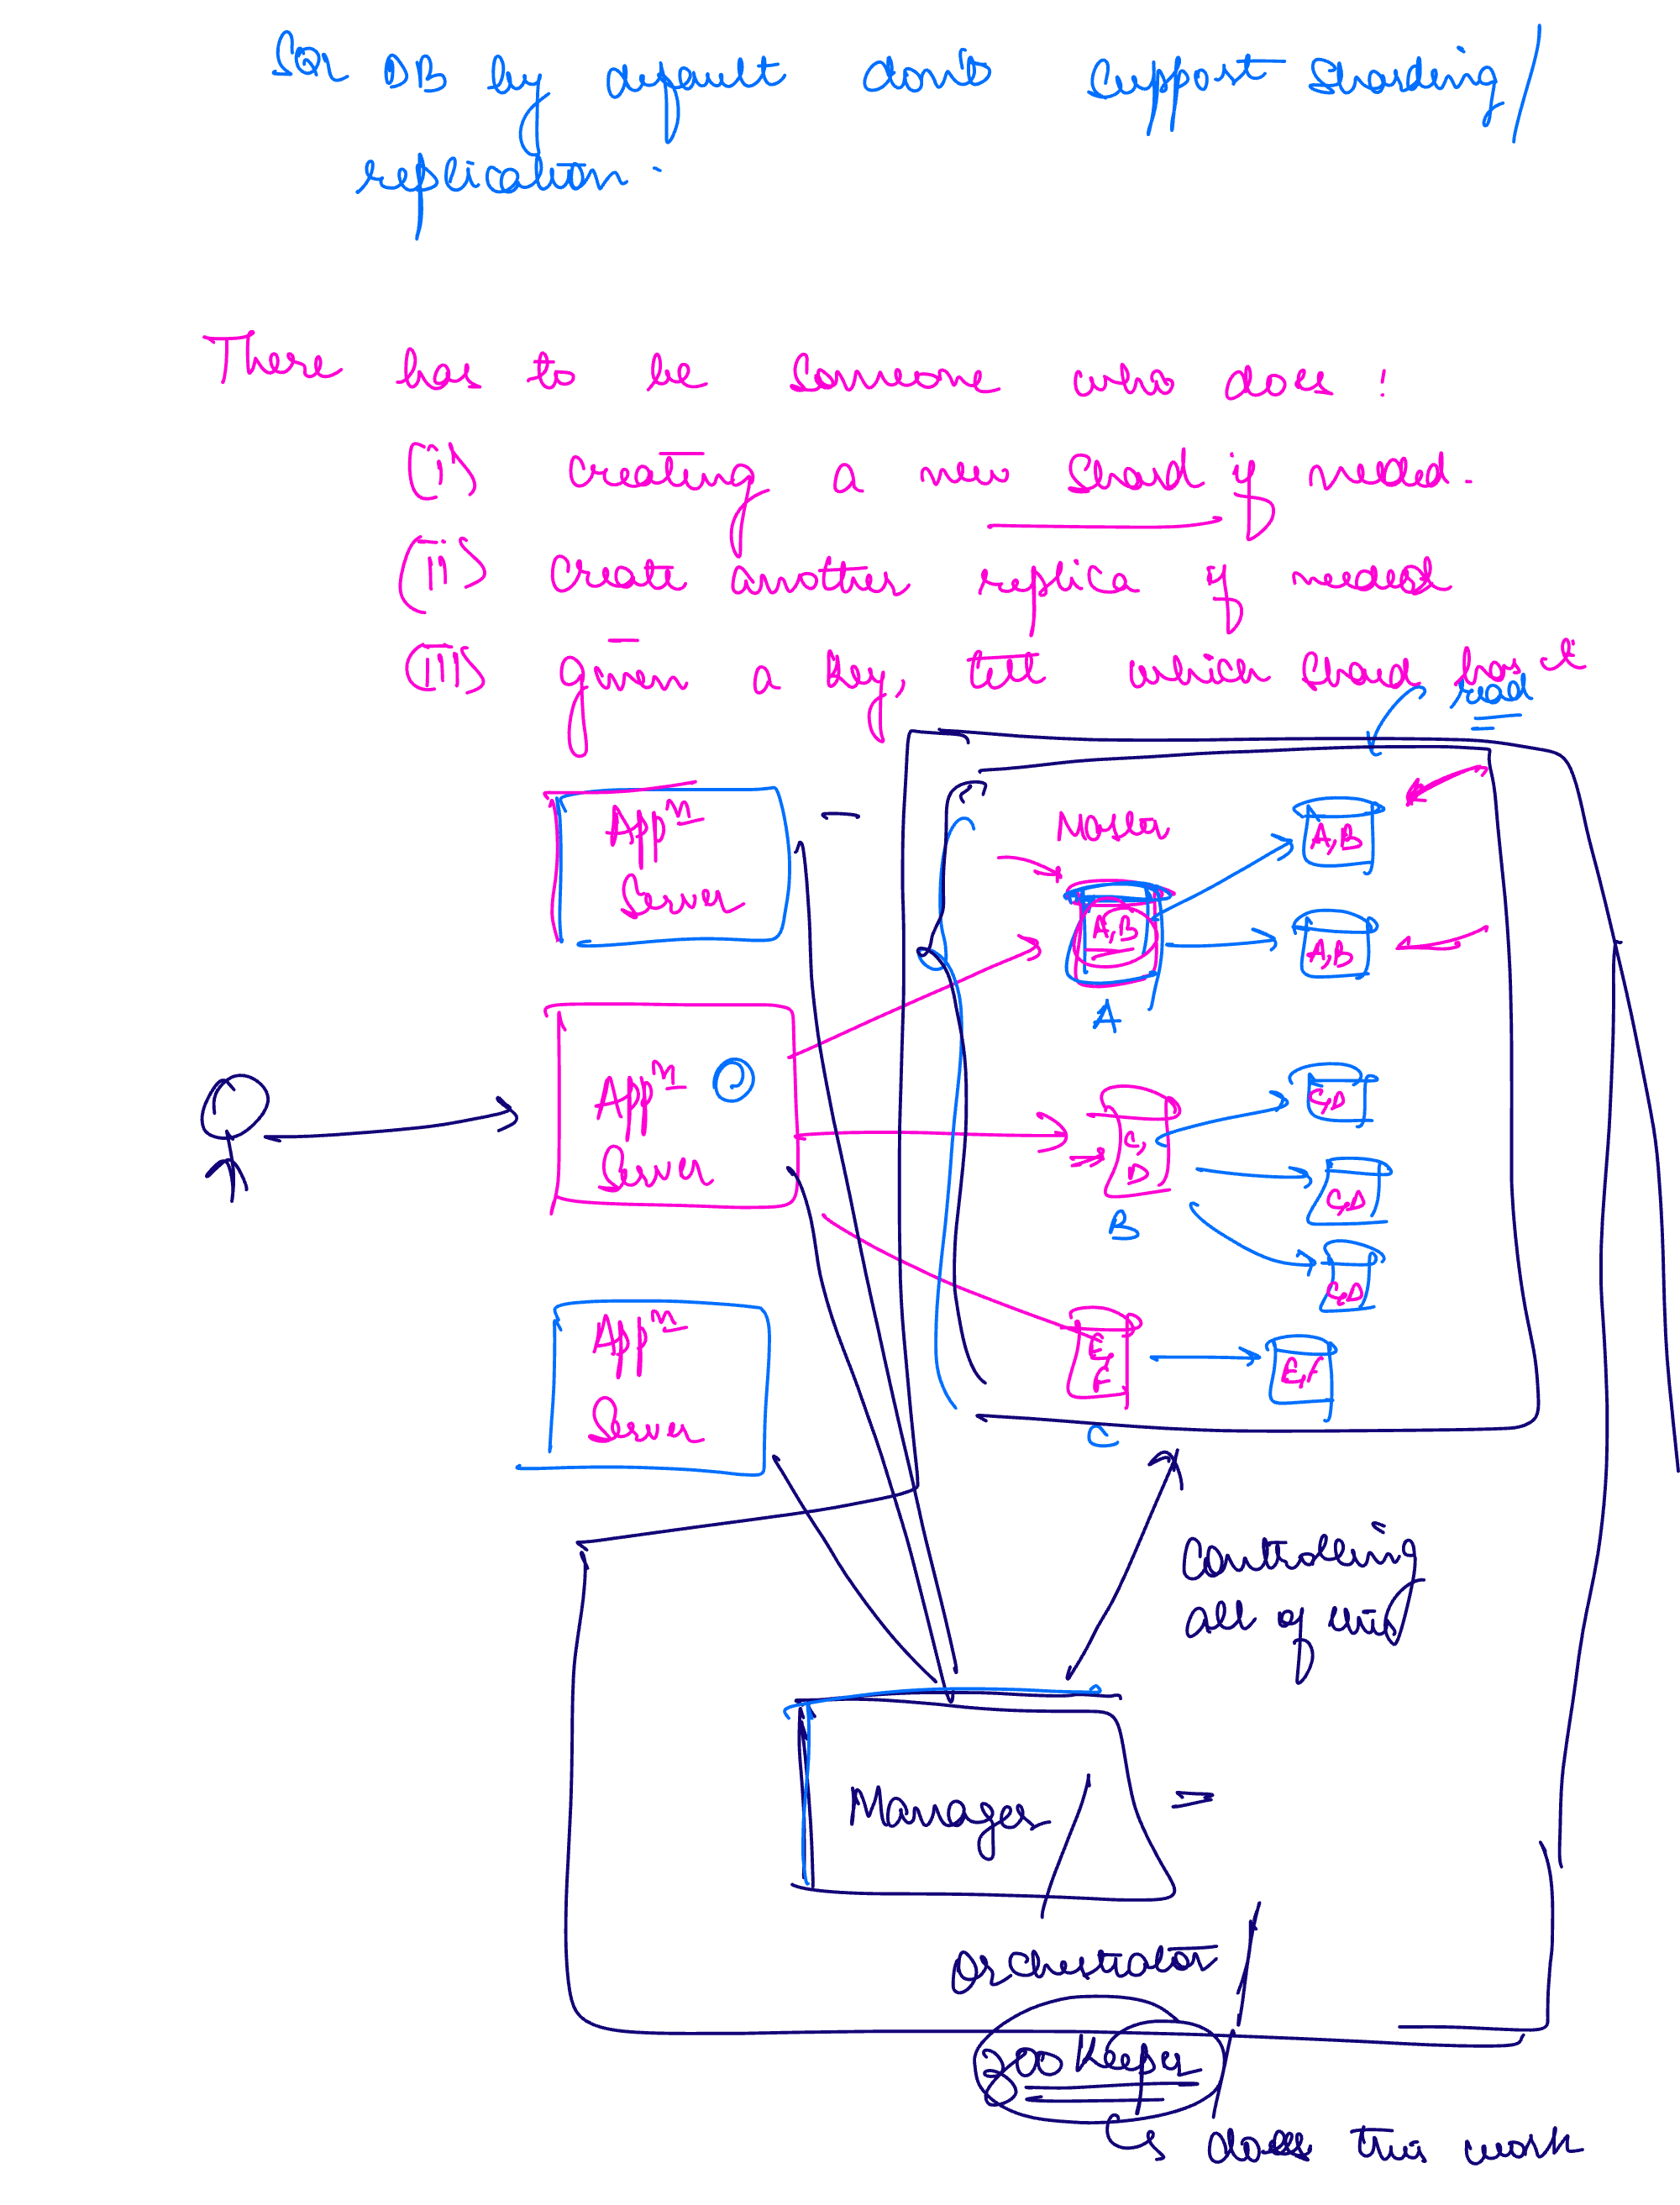 SQL DB by default don't support sharding/
replication.
There has to be someone who does:
(i) creating a new shard if needed.
(ii) create another replica if needed
(iii) given a key, tell which shard has it
read
Appn
Server
Master
A,B
A,B
A,B
A
Appn
Server
C,
D
C,D
C,D
C,D
B
Appn
Server
E,
F
E,F
C
Controlling
all of this
Manager
Orchestrator
Zookeeper
does this work